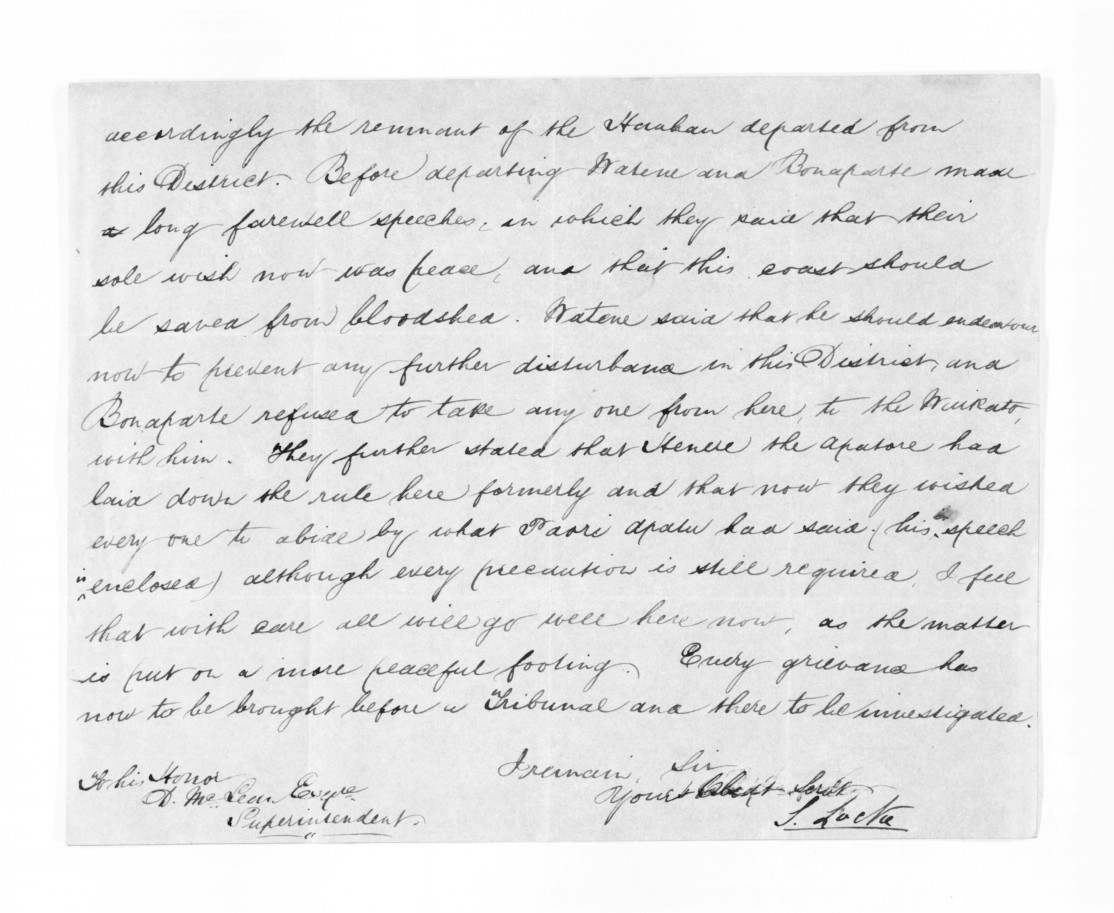 accordingly the remnant of the Hauhau departed from
this District. Before departing Watene and Bonaparte made
a long farewell speeches, in which they said that their
sole wish now was peace, and that this coast should
be saved from bloodshed. Watene said that he should endeavour
now to prevent any further disturbance in this District, and
Bonaparte refused to take any one from here, to the Waikato,
with him. They further stated that Henere the apatore had
laid down the rule here formerly and that now they wished
every one to abide by what Paori apatu had said (his speech
enclosed) although every precaution is still required, I feel
that with care all will go well here now, as the matter
is put on a more peaceful footing. Every grievance has
now to be brought before a Tribunal and there to be investigated.
I remain, Sir
Your Obedt Servt
S. Locke
To his Honor
D. McLean Esqre
Superintendent.